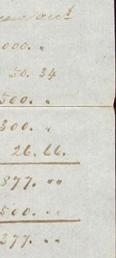 000. "
50. 34
500. "
300. "
26. 66.
877. "
500. "
377. "